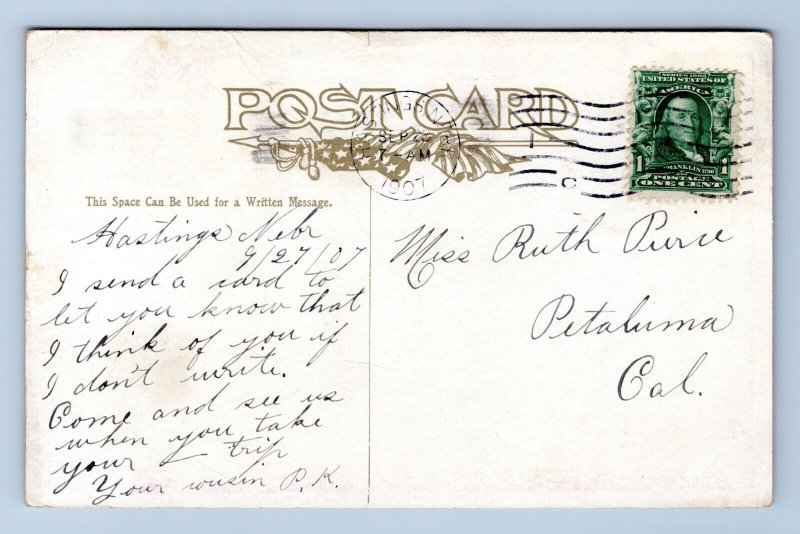 POST CARD
HASTINGS, NEBR.
SEP
7-AM
1907
SERIES 1902
UNITED STATES OF
AMERICA
FRANKLIN
1 POSTAGE 1
ONE CENT
This Space Can Be Used for a Written Message.
Hastings Nebr
9/27/07
I send a card to
let you know that
I think of you if
I don't write.
Come and see us
when you take
your — trip
Your cousin P.K.
Miss Ruth Pierce
Petaluma
Cal.